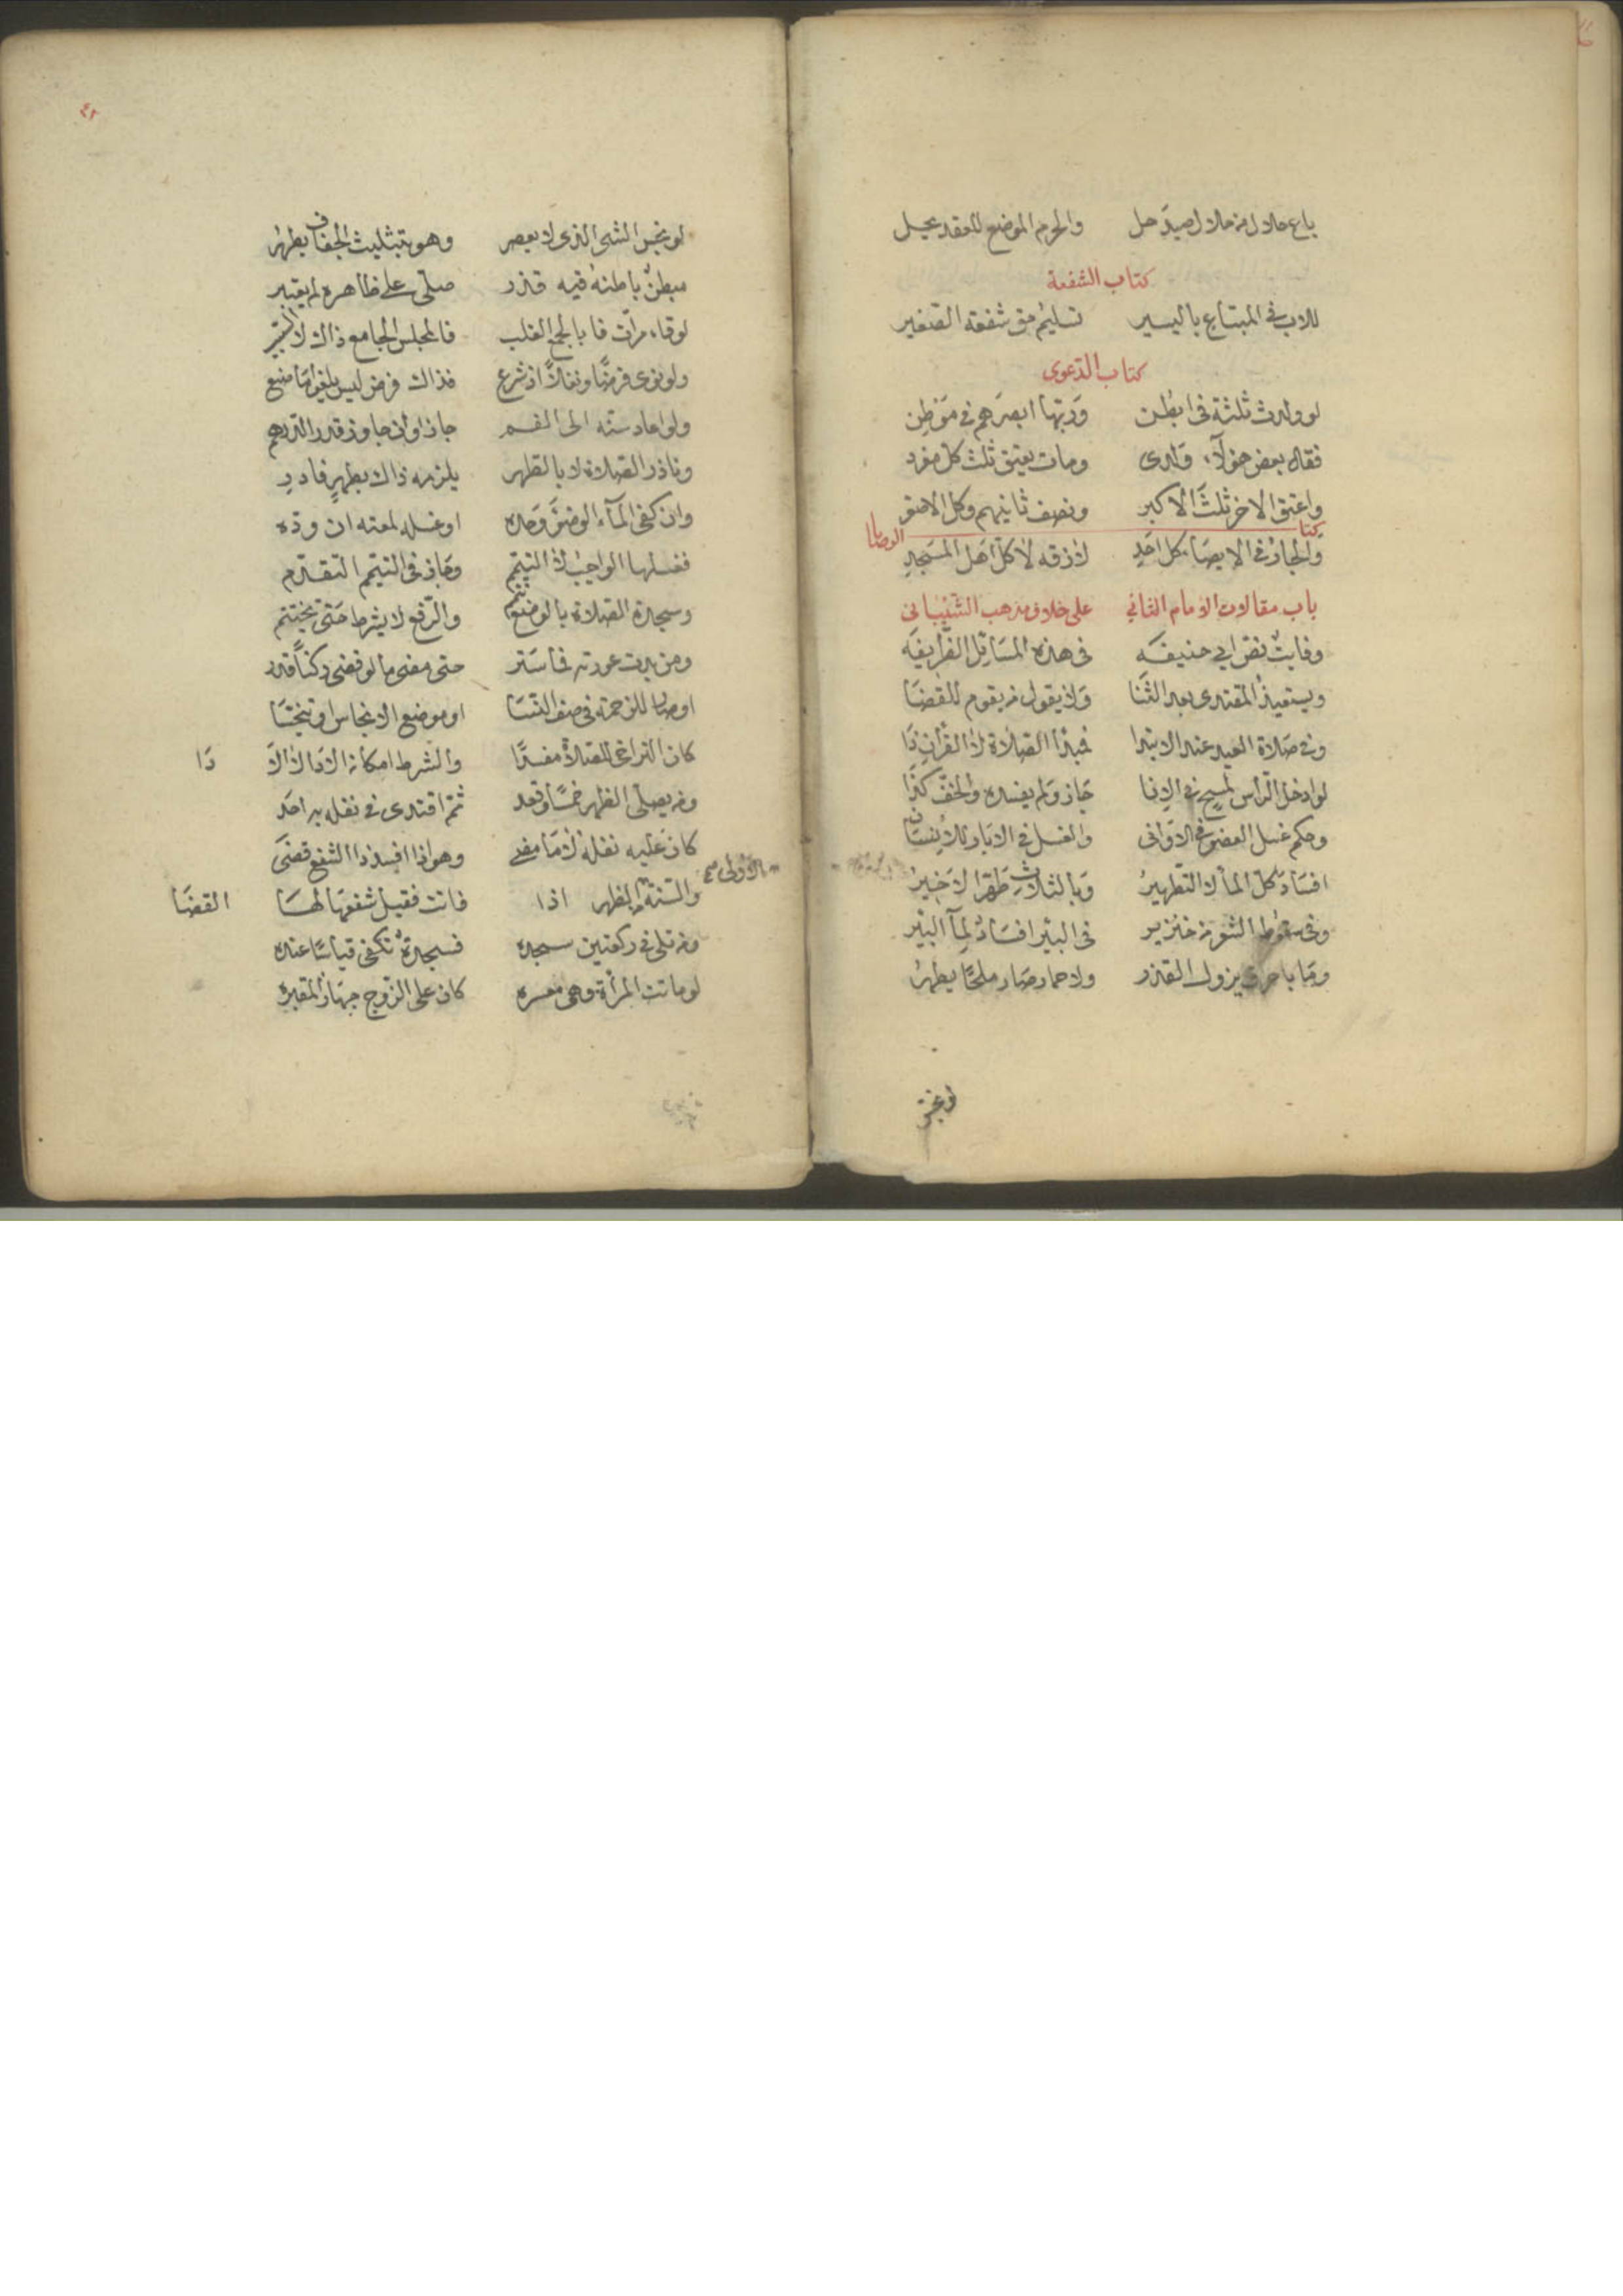 باع حلال من حلال صيد حل والحرم الموضع للعقد محل
كتاب الشفعة
للاب في المبتاع باليسير تسليم حق شفعة الصغير
كتاب الدعوى
لو ولدت ثلثة في ابطن وربها ابصرهم في موطن
فقال بعض هؤلاء ولدى ومات يعتق ثلث كل مفرد
واعتق الاخر ثلث الاكبر ونصف ثانيهم وكل الاصغر
كتاب الوصايا
والجار في الايصاء كل احد لازقه لا كل اهل المسجد
باب مقالات الامام الثاني على خلاف مذهب الشيباني
وفايت نص ابي حنيفه في هذه المسائل الشريفه
ويستعيذ المقتدى بعد الثنا ولا يقول من يقوم للقضا
وفي صلاة العيد عند الابتدا مبدا الصلاة لا القرآن ذا
لو ادخل الرأس لمسح في الانا جاز ولم يفسده والخف كذا
وحكم غسل العضو في الاواني والغسل في الابار للانسان
افساد كل الماء لا التطهير وبالثلاث طهرا الاخير
وفي سقوط الشعر من خنزير في البئر افساد لماء البئر
وما باحراق يزول القذر ولا حمار صار ملحا يطهر
لو نجس
لو نجس الشى الذى لا يعصر وهو بتثليث الجفاف يطهر
مبطن باطنه فيه قذر صلى على ظاهره لم يعتبر
لو قاء مرات فالمجلس الجامع ذاك لا
ولو نوى فرضا ونفلا اذ شرع فذاك فرض ليس يلغو ما صنع
ولو اعاد سنه الى الفم جاز وان جاوز قدر الدرهم
وناذر الصلاة لا بالطهر يلزمه ذاك بطهر فادر
وان كفى الماء الوضوء وحده او غسله لمعته ان وده
فغسلها الواجب لا التيمم وجاز في التيمم التقدم
وسجدة الصلاة بالوضع تتم والرفع لا يشرط حتى يختتم
ومن بدت عورته فما ستر حتى مضى ما لو قضى ركنا قدر
او صار للزحمة في صف النسا او موضع الانجاس او تنجسا
كان التراخى للصلاة مفسدا والشرط امكان الادا لا الادا
ومن يصلى الظهر خمسا وقعد ثم اقتدى في نفله به احد
كان عليه نفله لا ما مضى وهو اذا افسد ذا الشفع قضى
والسنة الاولى من الظهر اذا فاتت فقبل شفعها لها القضا
ومن تلى في ركعتين سجده فسجدة تكفى قياسا عنده
لو ماتت المرأة وهى معسره كان على الزوج جهاز المقبره